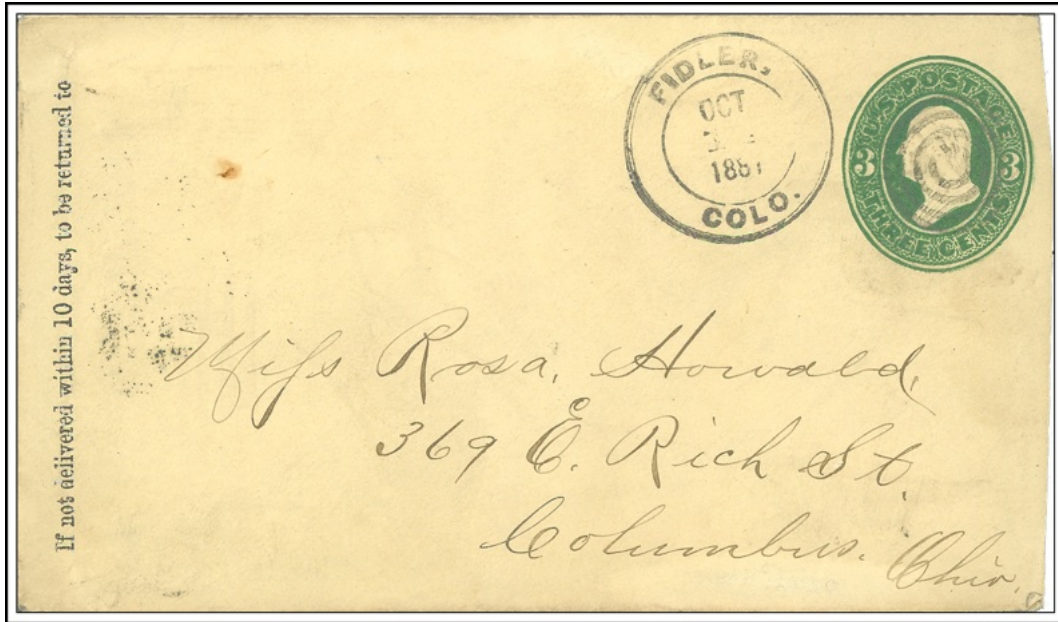 If not delivered within 10 days, to be returned to
FIDLER,
OCT
1881
COLO.
U.S. POSTAGE
3 3
THREE CENTS
Miss Rosa, Howald,
369 E. Rich St.
Columbus. Ohio.